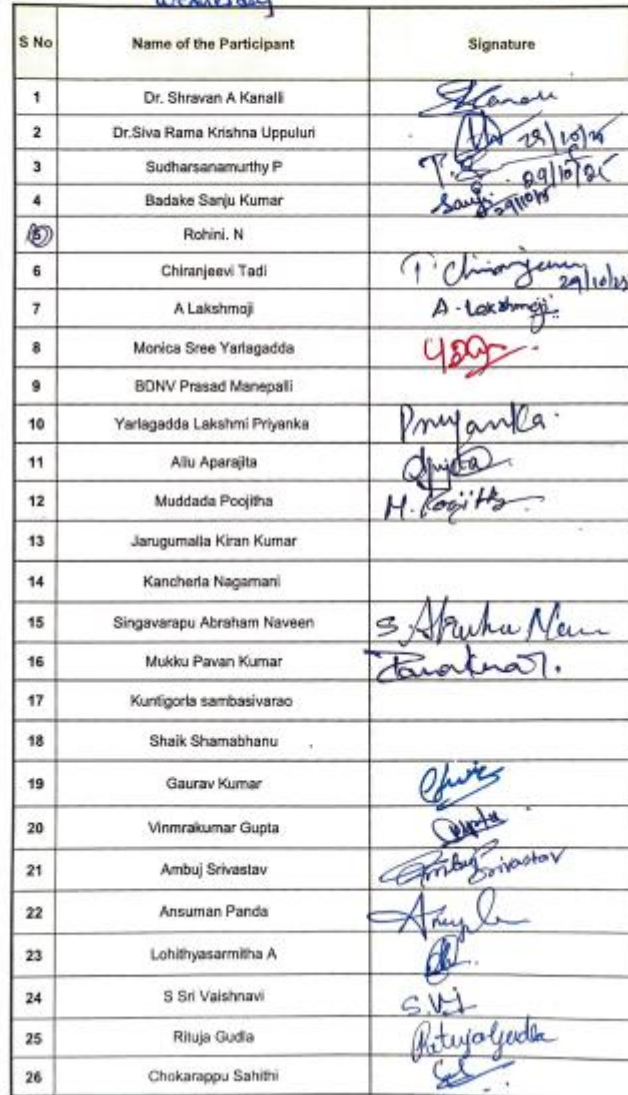 Wednesday
S No Name of the Participant Signature
1 Dr. Shravan A Kanalli
2 Dr.Siva Rama Krishna Uppuluri 29/10/25
3 Sudharsanamurthy P 29/10/25
4 Badake Sanju Kumar Sanju 29/10/25
5 Rohini. N
6 Chiranjeevi Tadi T. Chiranjeevi 29/10/25
7 A Lakshmoji A. Lakshmoji
8 Monica Sree Yarlagadda
9 BDNV Prasad Manepalli
10 Yarlagadda Lakshmi Priyanka Priyanka
11 Allu Aparajita
12 Muddada Poojitha M. Poojitha
13 Jarugumalla Kiran Kumar
14 Kancherla Nagamani
15 Singavarapu Abraham Naveen
16 Mukku Pavan Kumar
17 Kuntigorla sambasivarao
18 Shaik Shamabhanu
19 Gaurav Kumar
20 Vinmrakumar Gupta Gupta
21 Ambuj Srivastav Ambuj Srivastav
22 Ansuman Panda
23 Lohithyasarmitha A
24 S Sri Vaishnavi
25 Rituja Gudla Rituja Gudla
26 Chokarappu Sahithi